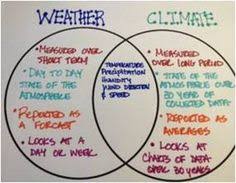 WEATHER
CLIMATE
• MEASURED OVER
SHORT TERM
• DAY TO DAY
STATE OF THE
ATMOSPHERE
• REPORTED AS
A FORCAST
• LOOKS AT A
DAY OR WEEK
TEMPERATURE
PRECIPITATION
HUMIDITY
WIND DIRECTION
& SPEED
• MEASURED
OVER LONG PERIOD
• STATE OF THE
ATMOSPHERE OVER
30 YEARS OF
COLLECTED DATA
• REPORTED AS
AVERAGES
• LOOKS AT
CHARTS OF DATA
OVER 30 YEARS